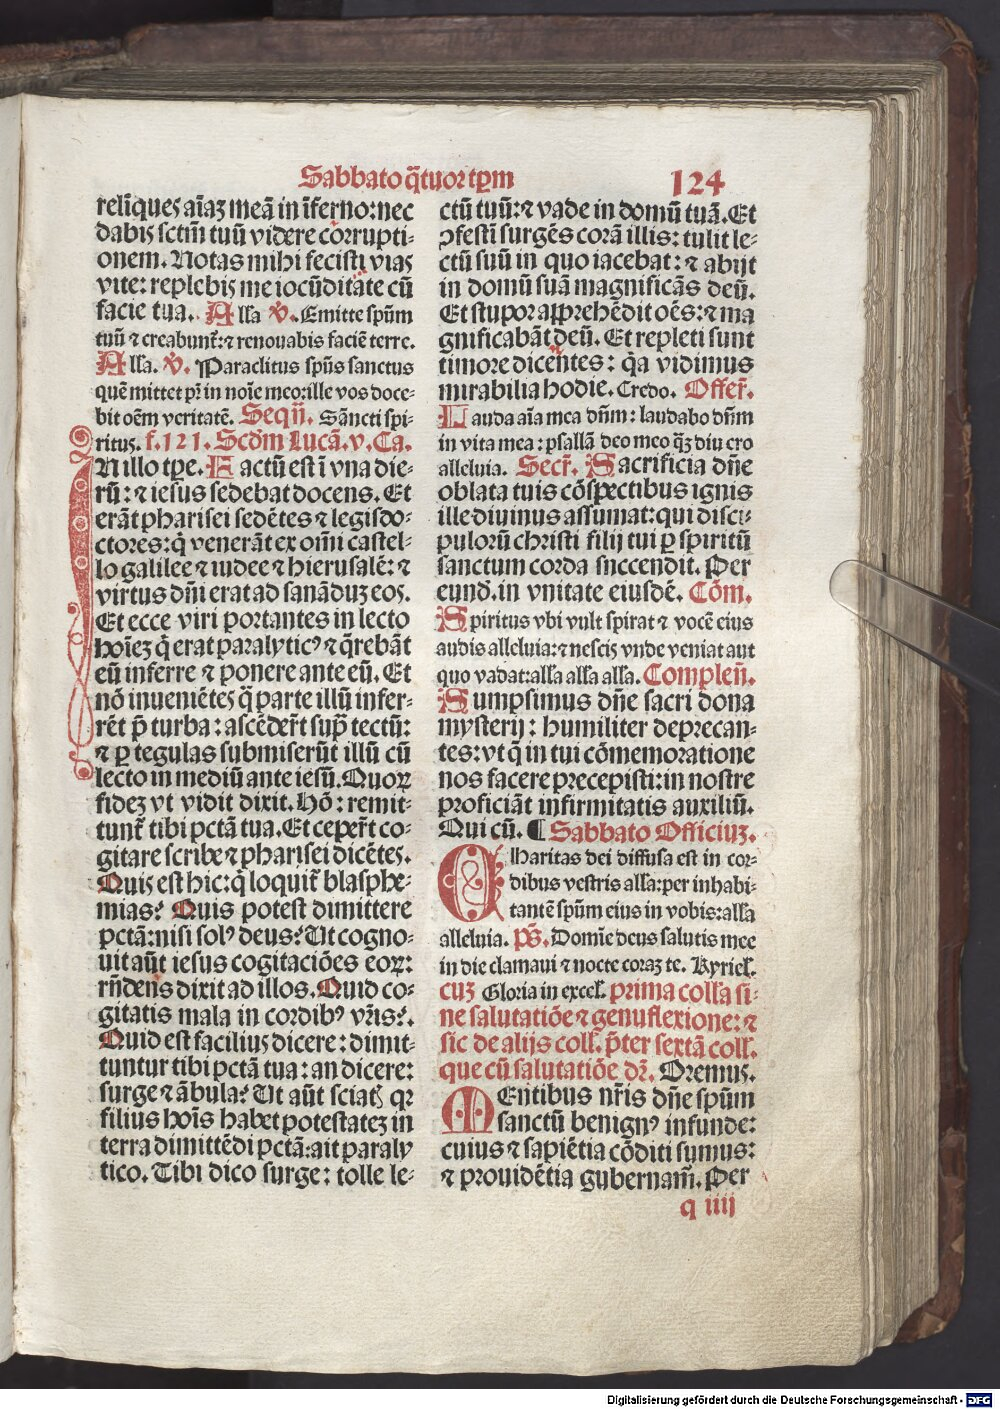 Sabbato q̄tuor tp̄m
124
reliq̄ues aīaꝫ meā in īferno: nec
dabis sctm̄ tuū videre corrupti-
onem. Notas mihi fecisti vias
vite: replebis me iocūditate cū
facie tua. Alla ℣. Emitte spūm
tuū ⁊ creabunt̄: ⁊ renouabis faciē terre.
Alla. ℣. Paraclitus spūs sanctus
quē mittet pr̄ in noīe meo: ille vos doce-
bit oēm veritatē. Seqn̄. Sācti spi-
ritus. f. 121. Scdm̄ Lucā. v. Ca.
IN illo tp̄e. Factū est ī vna die-
rū: ⁊ iesus sedebat docens. Et
erāt pharisei sedētes ⁊ legisdo-
ctores: q̇ venerāt ex om̄i castel-
lo galilee ⁊ iudee ⁊ hierusalē: ⁊
virtus dn̄i erat ad sanāduꝫ eos.
Et ecce viri portantes in lecto
hoīeꝫ q̇ erat paralyticꝰ ⁊ q̄rebāt
eū inferre ⁊ ponere ante eū. Et
nō inuenietēs q̄ parte illū infer-
rēt p̄ turba: ascēder̄t sup̄ tectū:
⁊ ꝑ tegulas submiserūt illū cū
lecto in mediū ante iesū. Quoꝝ
fideꝫ vt vidit dixit. Hō: remit-
tunt̄ tibi pctā tua. Et ceper̄t co-
gitare scribe ⁊ pharisei dicētes.
Quis est hic: q̇ loquit̄ blasphe-
mias? Quis potest dimittere
pctā: nisi solꝰ deus? Ut cogno-
uit aūt iesus cogitaciōes eoꝝ:
rn̄dens dixit ad illos. Quid co-
gitatis mala in cordibꝰ vr̄is?
Quid est facilius dicere: dimit-
tuntur tibi pctā tua: an dicere:
surge ⁊ ābula? Ut aūt sciatꝭ qꝛ
filius hoīs habet potestateꝫ in
terra dimittēdi pctā: ait paraly
tico. Tibi dico surge: tolle le-
ctū tuū: ⁊ vade in domū tuā. Et
ꝯfestī surgēs corā illis: tulit le-
ctū suū in quo iacebat: ⁊ abijt
in domū suā magnificās deū.
Et stupor apprehēdit oēs: ⁊ ma
gnificabāt deū. Et repleti sunt
timore dicentes: q̄a vidimus
mirabilia hodie. Credo. Offer̄.
Lauda aīa mea dn̄m: laudabo dn̄m
in vita mea: psallā deo meo q̄ꝫ diu ero
alleluia. Secr̄. Sacrificia dn̄e
oblata tuis cōspectibus ignis
ille diuinus assumat: qui disci-
pulorū christi filij tui ꝑ spiritū
sanctum corda snccendit. Per
eund̄. in vnitate eiusdē. Cōm.
Spiritus vbi vult spirat ⁊ vocē eius
audis alleluia: ⁊ nescis vnde veniat aut
quo vadat: alla alla alla. Complen̄.
Sumpsimus dn̄e sacri dona
mysterij: humiliter deprecan-
tes: vt q̄ in tui cōmemoratione
nos facere precepisti: in nostre
proficiāt infirmitatis auxiliū.
Qui cū. ¶ Sabbato Officiuꝫ.
Charitas dei diffusa est in cor-
dibus vestris alla: per inhabi-
tantē spūm eius in vobis: alla
alleluia. ps̄. Domīe deus salutis mee
in die clamaui ⁊ nocte coraꝫ te. Kyriel̄.
cuꝫ Gloria in excel̄. prima colla si-
ne salutatiōe ⁊ genuflexione: ⁊
sic de alijs coll̄. p̄ter sextā coll̄.
que cū salutatiōe dr̄. Oremus.
MEntibus nr̄is dn̄e spūm
sanctū benignꝰ infunde:
cuius ⁊ sapiētia cōditi sumus:
⁊ prouidētia gubernam̄. Per
q iiij
Digitalisierung gefördert durch die Deutsche Forschungsgemeinschaft - DFG